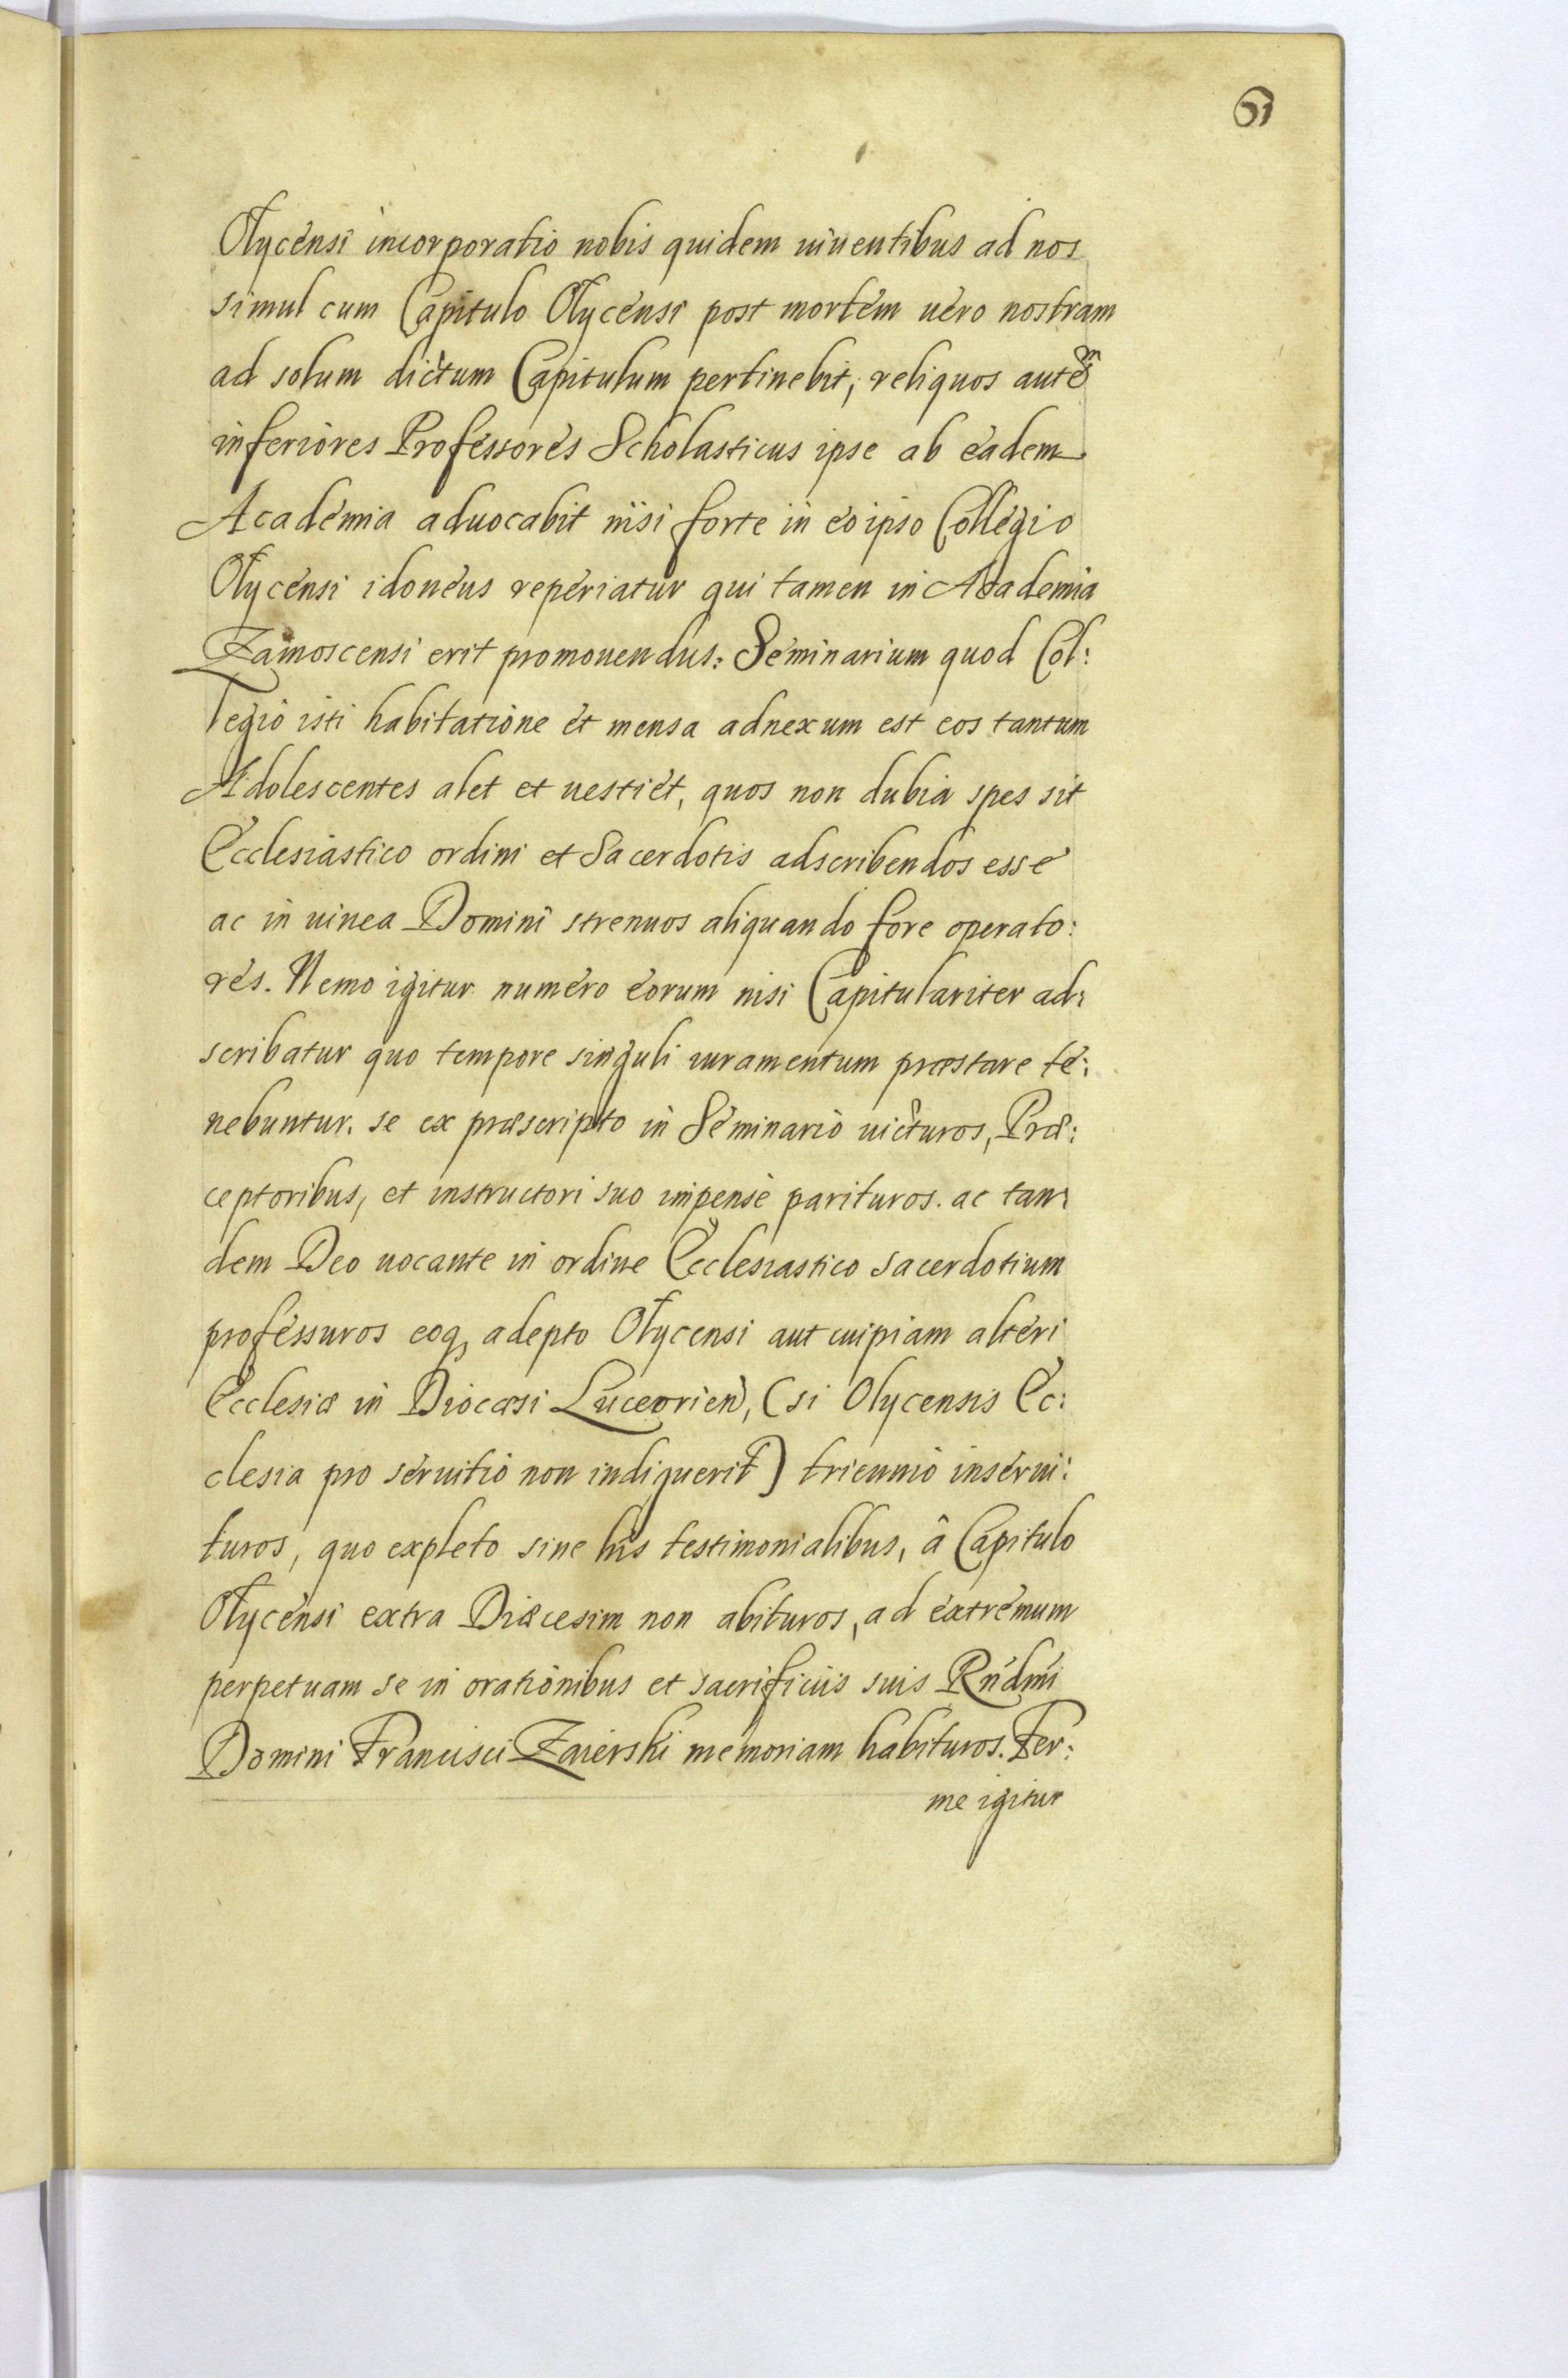 51
Olycensi incorporatio nobis quidem uiuentibus ad nos
simul cum Capitulo Olycensi post mortem uero nostram
ad solum dictum Capitulum pertinebit, reliquos autem
inferiores Professores Scholasticus ipse ab eadem
Academia aduocabit nisi forte in eo ipso Collegio
Olycensi idoneus reperiatur qui tamen in Academia
Zamoscensi erit promouendus: Seminarium quod Col:
legio isti habitatione et mensa adnexum est eos tantum
Adolescentes alet et uestiet, quos non dubia spes sit
Ecclesiastico ordini et Sacerdotis adscribendos esse
ac in uinea Domini strenuos aliquando fore operato:
res. Nemo igitur numero eorum nisi Capitulariter ad:
scribatur quo tempore singuli iuramentum præstare te:
nebuntur. se ex præscripto in Seminario uicturos, Præ:
ceptoribus, et instructori suo impense parituros. ac tan:
dem Deo uocante in ordine Ecclesiastico sacerdotium
professuros eoq, adepto Olycensi aut cuipiam alteri
Ecclesiæ in Diocæsi Luceorien, (si Olycensis Ec:
clesia pro seruitio non indiguerit) triennio inserui:
turos, quo expleto sine lris testimonialibus, â Capitulo
Olycensi extra Diæcesim non abituros, ad extremum
perpetuam se in orationibus et sacrificiis suis Rndmi
Domini Francisci Zaierski memoriam habituros. Fer:
me igitur